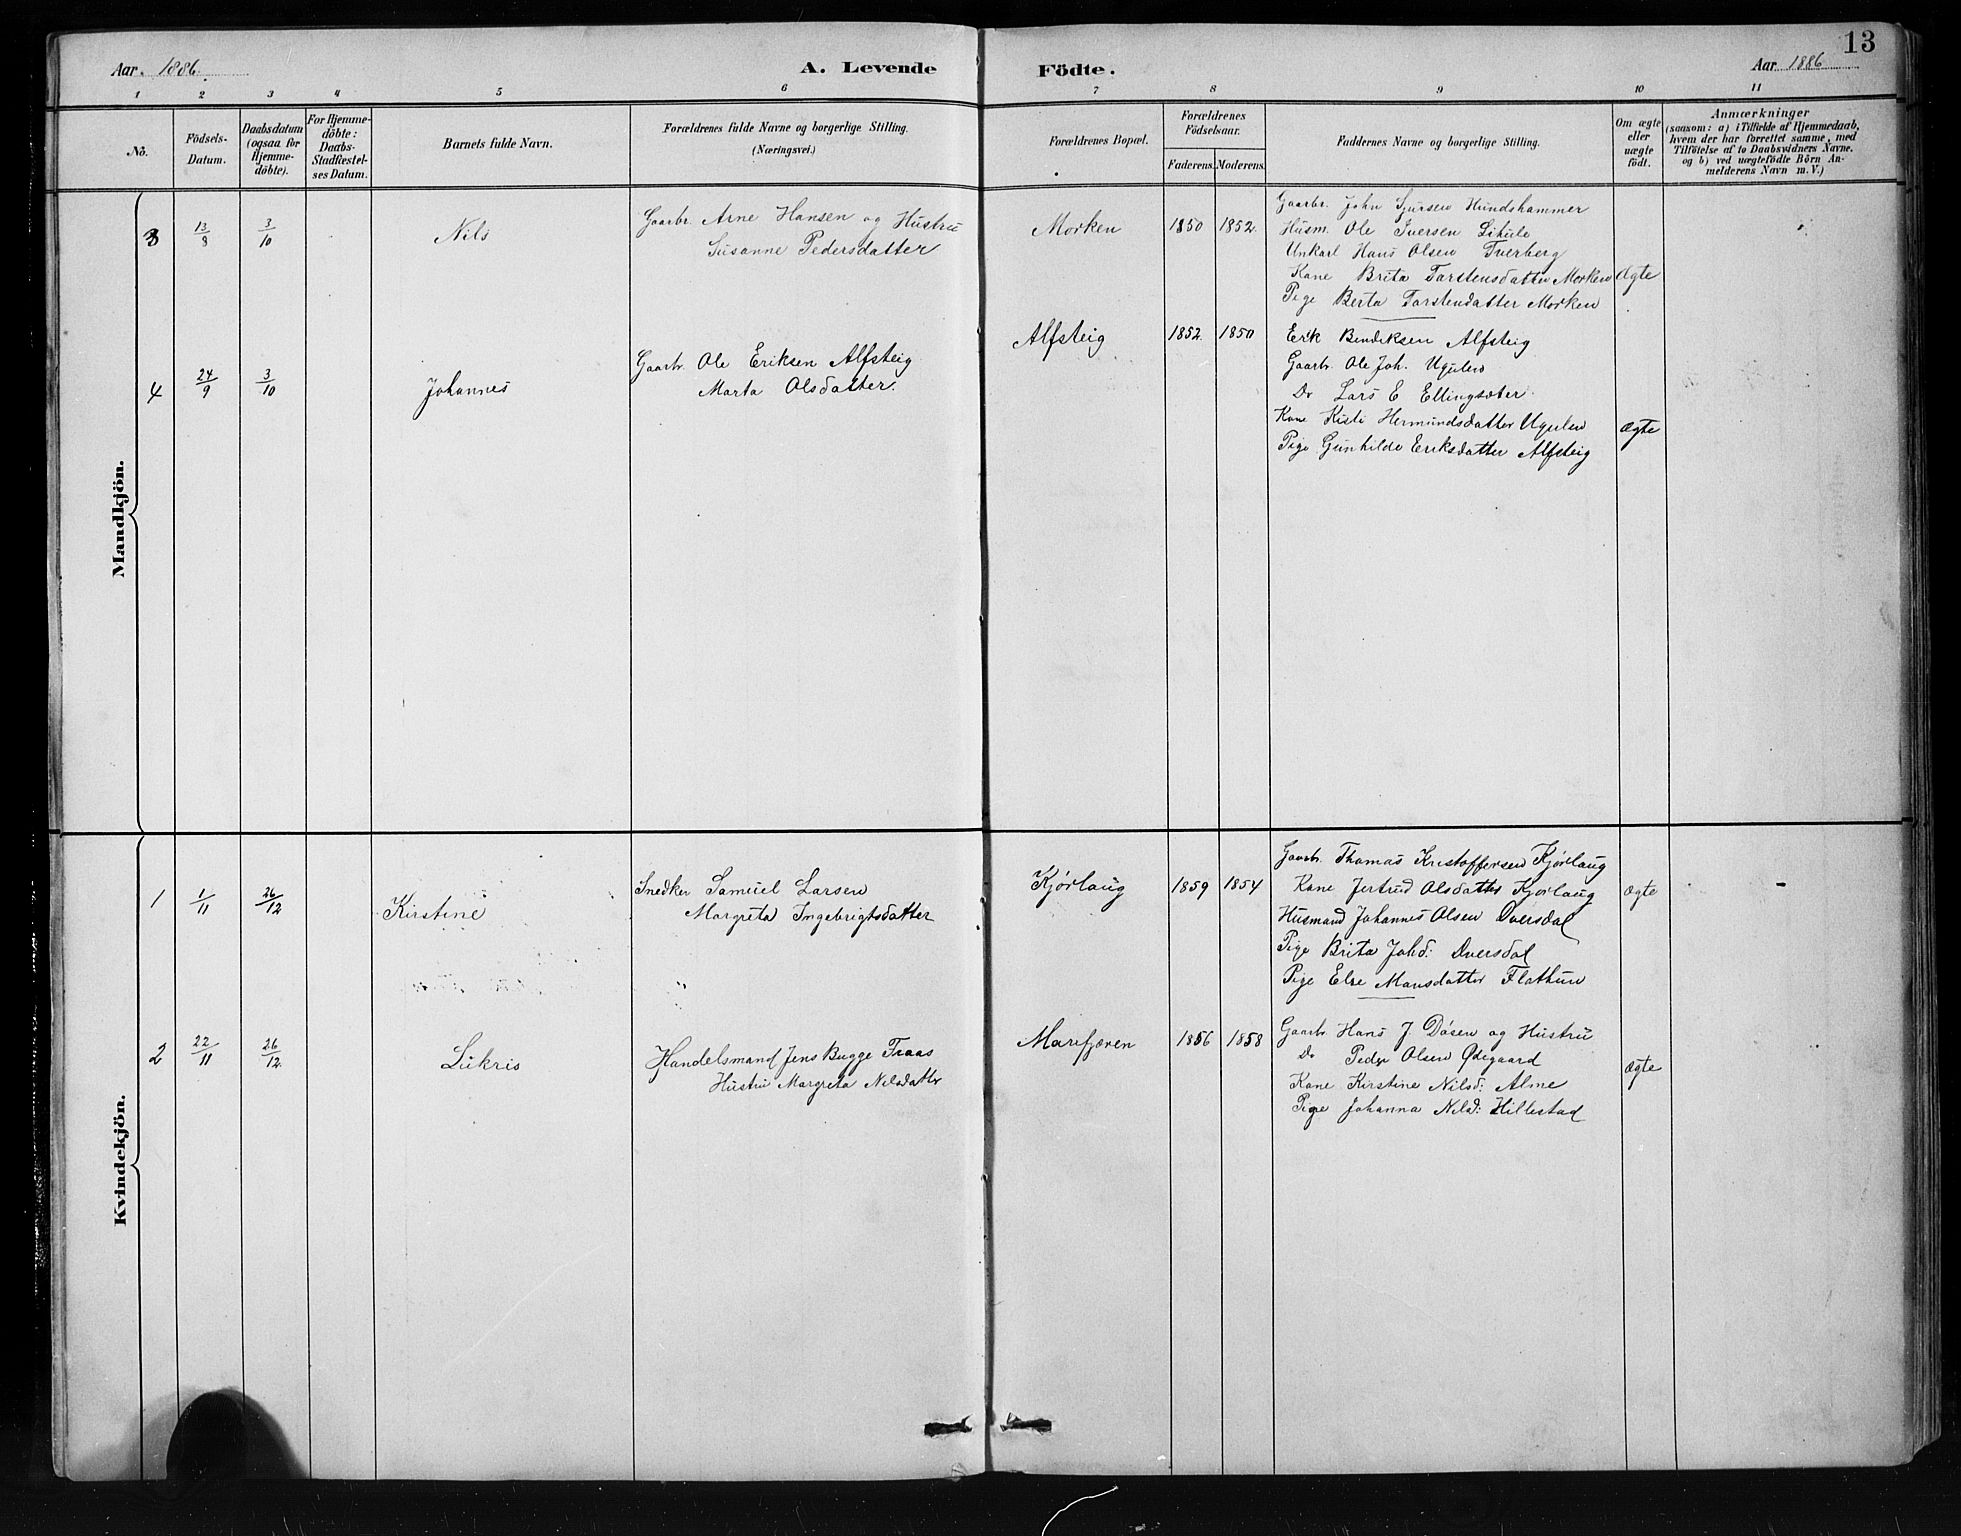 13
Aar. 1886.
A. Levende Födte.
Aar 1886
1 2 3 4 5 6 7 8 9 10 11
No.
Födsels-Datum.
Daabsdatum (ogsaa for Hjemme-döbte).
For Hjemme-döbte: Daabs-Stadfæstel-ses Datum.
Barnets fulde Navn.
Forældrenes fulde Navne og borgerlige Stilling.
(Næringsvei.)
Forældrenes Bopæl.
Forældrenes Födselsaar.
Faderens. Moderens.
Faddernes Navne og borgerlige Stilling.
Om ægte eller uægte födt.
Anmærkninger
(saasom: a) i Tilfælde af Hjemmedaab,
hvem der har forrettet samme, med
Tilföielse af to Daabsvidners Navne.
og b) ved uægtefödte Börn An-
melderens Navn m. V.)
Mandkjön.
3 13/8 3/10 Nils
Gaarbr. Arne Hansen og Hustru
Susanne Pedersdatter
Morken 1850 1852.
Gaarbr. John Sjursen Hundshammer
Husm. Ole Iversen Lihule
Unkarl Hans Olsen Tverberg
Kone Brita Torstensdatter Morken Ægte
Pige Berta Torstendatter Morken
4 24/9 3/10 Johannes
Gaarbr. Ole Eriksen Alfsteig
Marta Olsdatter.
Alfsteig 1852. 1850
Erik Bendiksen Alfsteig
Gaarbr. Ole Joh. Ugulen
Do Lars E Ellingsæter.
Kone Kisti Hermundsdatter Ugulen Ægte
Pige Gunhilde Eriksdatter Alfsteig
Kvindekjön.
1 1/11 26/12 Kirstine
Snedker Samuel Larsen
Margreta Ingebrigtsdatter
Kjørlaug 1859 1854
Gaarbr. Thomas Kristoffersen Kjørlaug
Kone Jertrud Olsdatter Kjørlaug Ægte
Husmand Johannes Olsen Dversdal
Pige Brita Johd: Dversdal
Pige Else Monsdatter Flathun
2 22/11 26/12. Lukris
Handelsmand Jens Bugge Fraas
Hustru Margreta Nilsdatter
Marifjæren 1856 1858
Gaarbr Hans J. Døsen og Hustru
Do Peder Olsen Ødegaard
Kone Kirstine Nilsd: Alme Ægte
Pige Johanna Nilsd: Hillestad